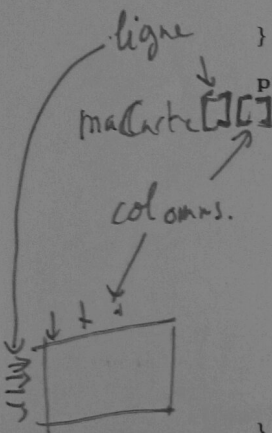 ligne }
p
maCarte[][]
colonnns.
}